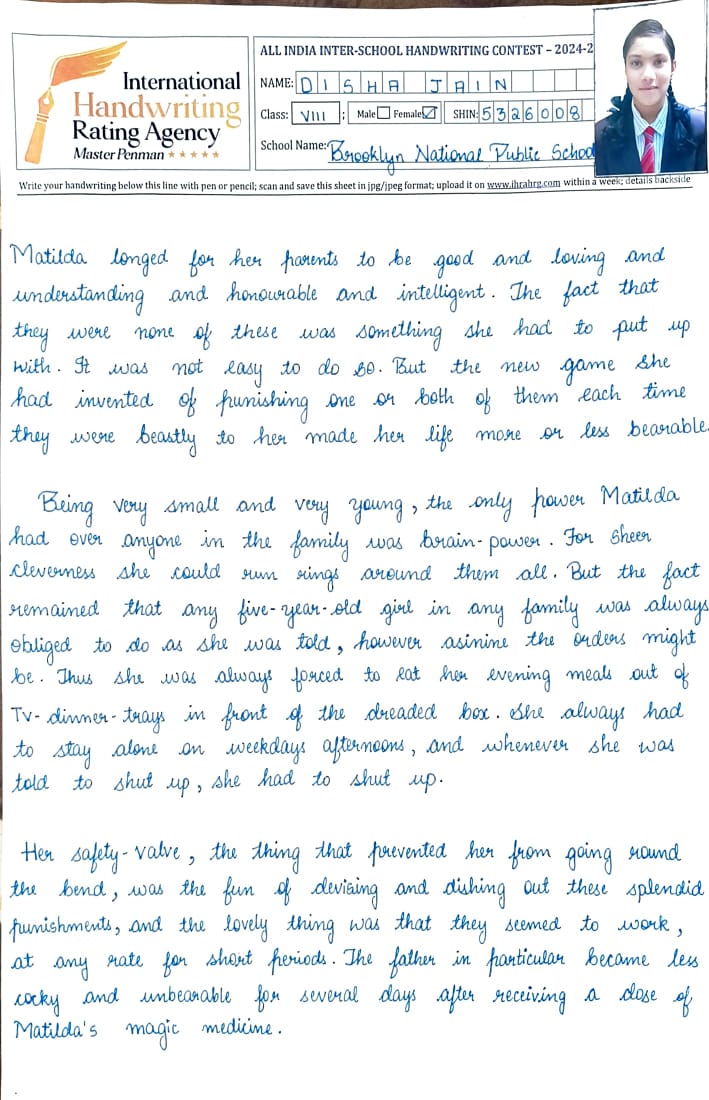 International
Handwriting
Rating Agency
Master Penman ★★★★★
ALL INDIA INTER-SCHOOL HANDWRITING CONTEST – 2024-2
NAME: DISHA JAIN
Class: VIII ; Male Female ☑ SHIN: 5326008
School Name: Brooklyn National Public School
Write your handwriting below this line with pen or pencil; scan and save this sheet in jpg/jpeg format; upload it on www.ihrahrg.com within a week; details backside
Matilda longed for her parents to be good and loving and
understanding and honourable and intelligent. The fact that
they were none of these was something she had to put up
with. It was not easy to do so. But the new game she
had invented of punishing one or both of them each time
they were beastly to her made her life more or less bearable.
Being very small and very young, the only power Matilda
had over anyone in the family was brain-power. For sheer
cleverness she could run rings around them all. But the fact
remained that any five-year-old girl in any family was always
obliged to do as she was told, however asinine the orders might
be. Thus she was always forced to eat her evening meals out of
Tv-dinner-trays in front of the dreaded box. She always had
to stay alone on weekdays afternoons, and whenever she was
told to shut up, she had to shut up.
Her safety-valve, the thing that prevented her from going round
the bend, was the fun of devising and dishing out these splendid
punishments, and the lovely thing was that they seemed to work,
at any rate for short periods. The father in particular became less
cocky and unbearable for several days after receiving a dose of
Matilda's magic medicine.